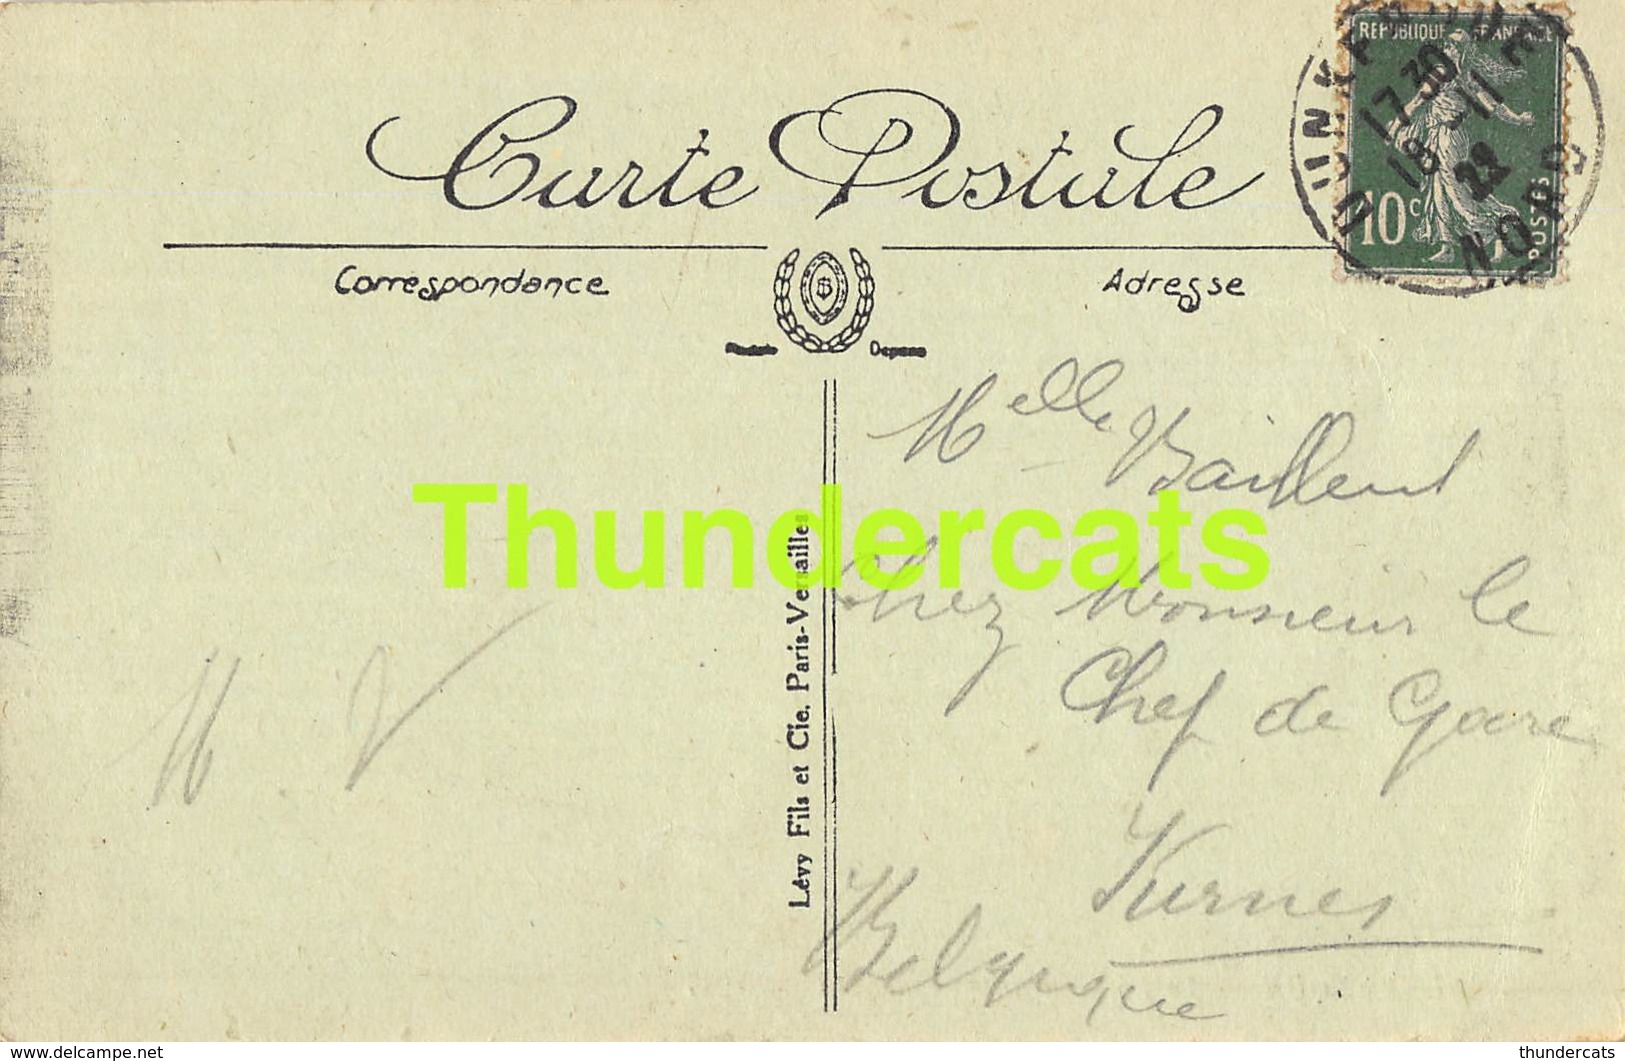 Carte Postale
Correspondance
Adresse
REPUBLIQUE FRANCAISE
10 c
POSTES
DUNKERQUE
17 30
18 - 11
22
NORD
Melle Baillent
Chez Monsieur le
Chef de Gare
Furnes
Belgique
M V
Lévy Fils et Cie, Paris-Versailles
Thundercats
delcampe.net
thundercats